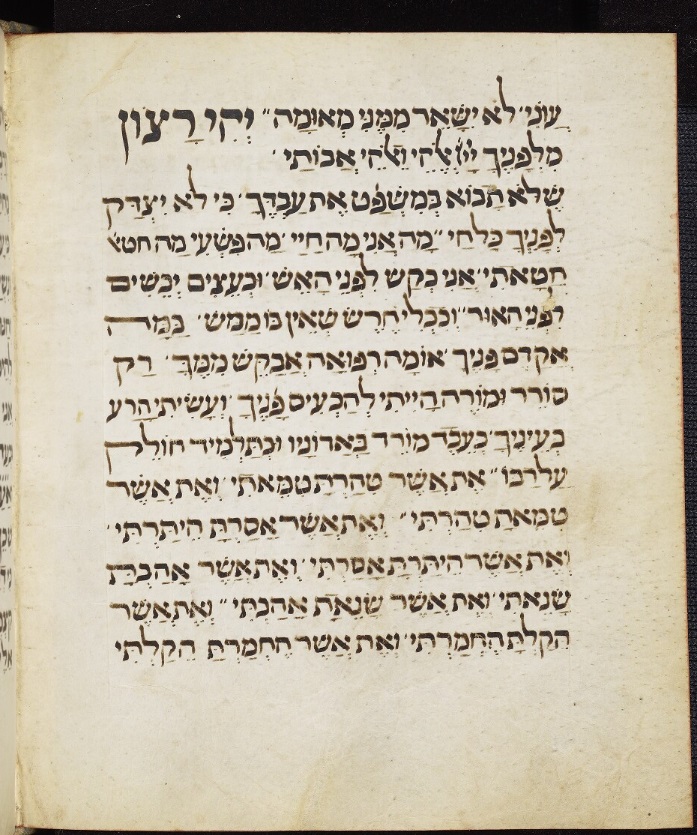 עֲוֹנִי׳ לֹא יִשָּׁאֵר מִמֶּנִּי מְאוּמָה״ יְהִי רָצוֹן
מִלְּפָנֶיךָ יְיָ׳ אֱלֹהַי וֵאלֹהֵי אֲבוֹתַי׳
שֶׁלֹּא תָבוֹא בְּמִשְׁפָּט אֶת עַבְדֶּךָ׳ כִּי לֹא יִצְדַּק
לְפָנֶיךָ כָּל חַי׳״ מָה אֲנִי מֶה חַיַּי׳ מַה פִּשְׁעִי מַה חַטֹּא׳
חַטָּאתִי׳ אֲנִי כְקַשׁ לִפְנֵי הָאֵשׁ׳ וּכְעֵצִים יְבֵשִׁים
לִפְנֵי הָאוּר״ וְכִכְלִי חֶרֶשׂ שֶׁאֵין בּוֹ מַמָּשׁ׳ בַּמָּה
אֲקַדֵּם פָּנֶיךָ׳ אוֹ מָה רְפוּאָה אֲבַקֵּשׁ מִמֶּךָּ׳ רַק
סוֹרֵר וּמוֹרֶה הָיִיתִי לְהַכְעִיס פָּנֶיךָ׳ וְעָשִׂיתִי הָרַע
בְּעֵינֶיךָ׳ כְּעֶבֶד מוֹרֵד בַּאדוֹנָיו וּכְתַלְמִיד חוֹלֵק
עַל רַבּוֹ״ אֶת אֲשֶׁר טִהַרְתָּ טִמֵּאתִי׳ וְאֶת אֲשֶׁר
טִמֵּאתָ טִהַרְתִּי״ וְאֶת אֲשֶׁר אָסַרְתָּ הִיתַּרְתִּי׳
וְאֶת אֲשֶׁר הִיתַּרְתָּ אָסַרְתִּי׳ וְאֶת אֲשֶׁר אָהַבְתָּ
שָׂנֵאתִי׳ וְאֶת אֲשֶׁר שָׂנֵאתָ אָהַבְתִּי״ וְאֶת אֲשֶׁר
הֵקַלְתָּ הֶחְמַרְתִּי׳ וְאֶת אֲשֶׁר הֶחְמַרְתָּ הֵקַלְתִּי